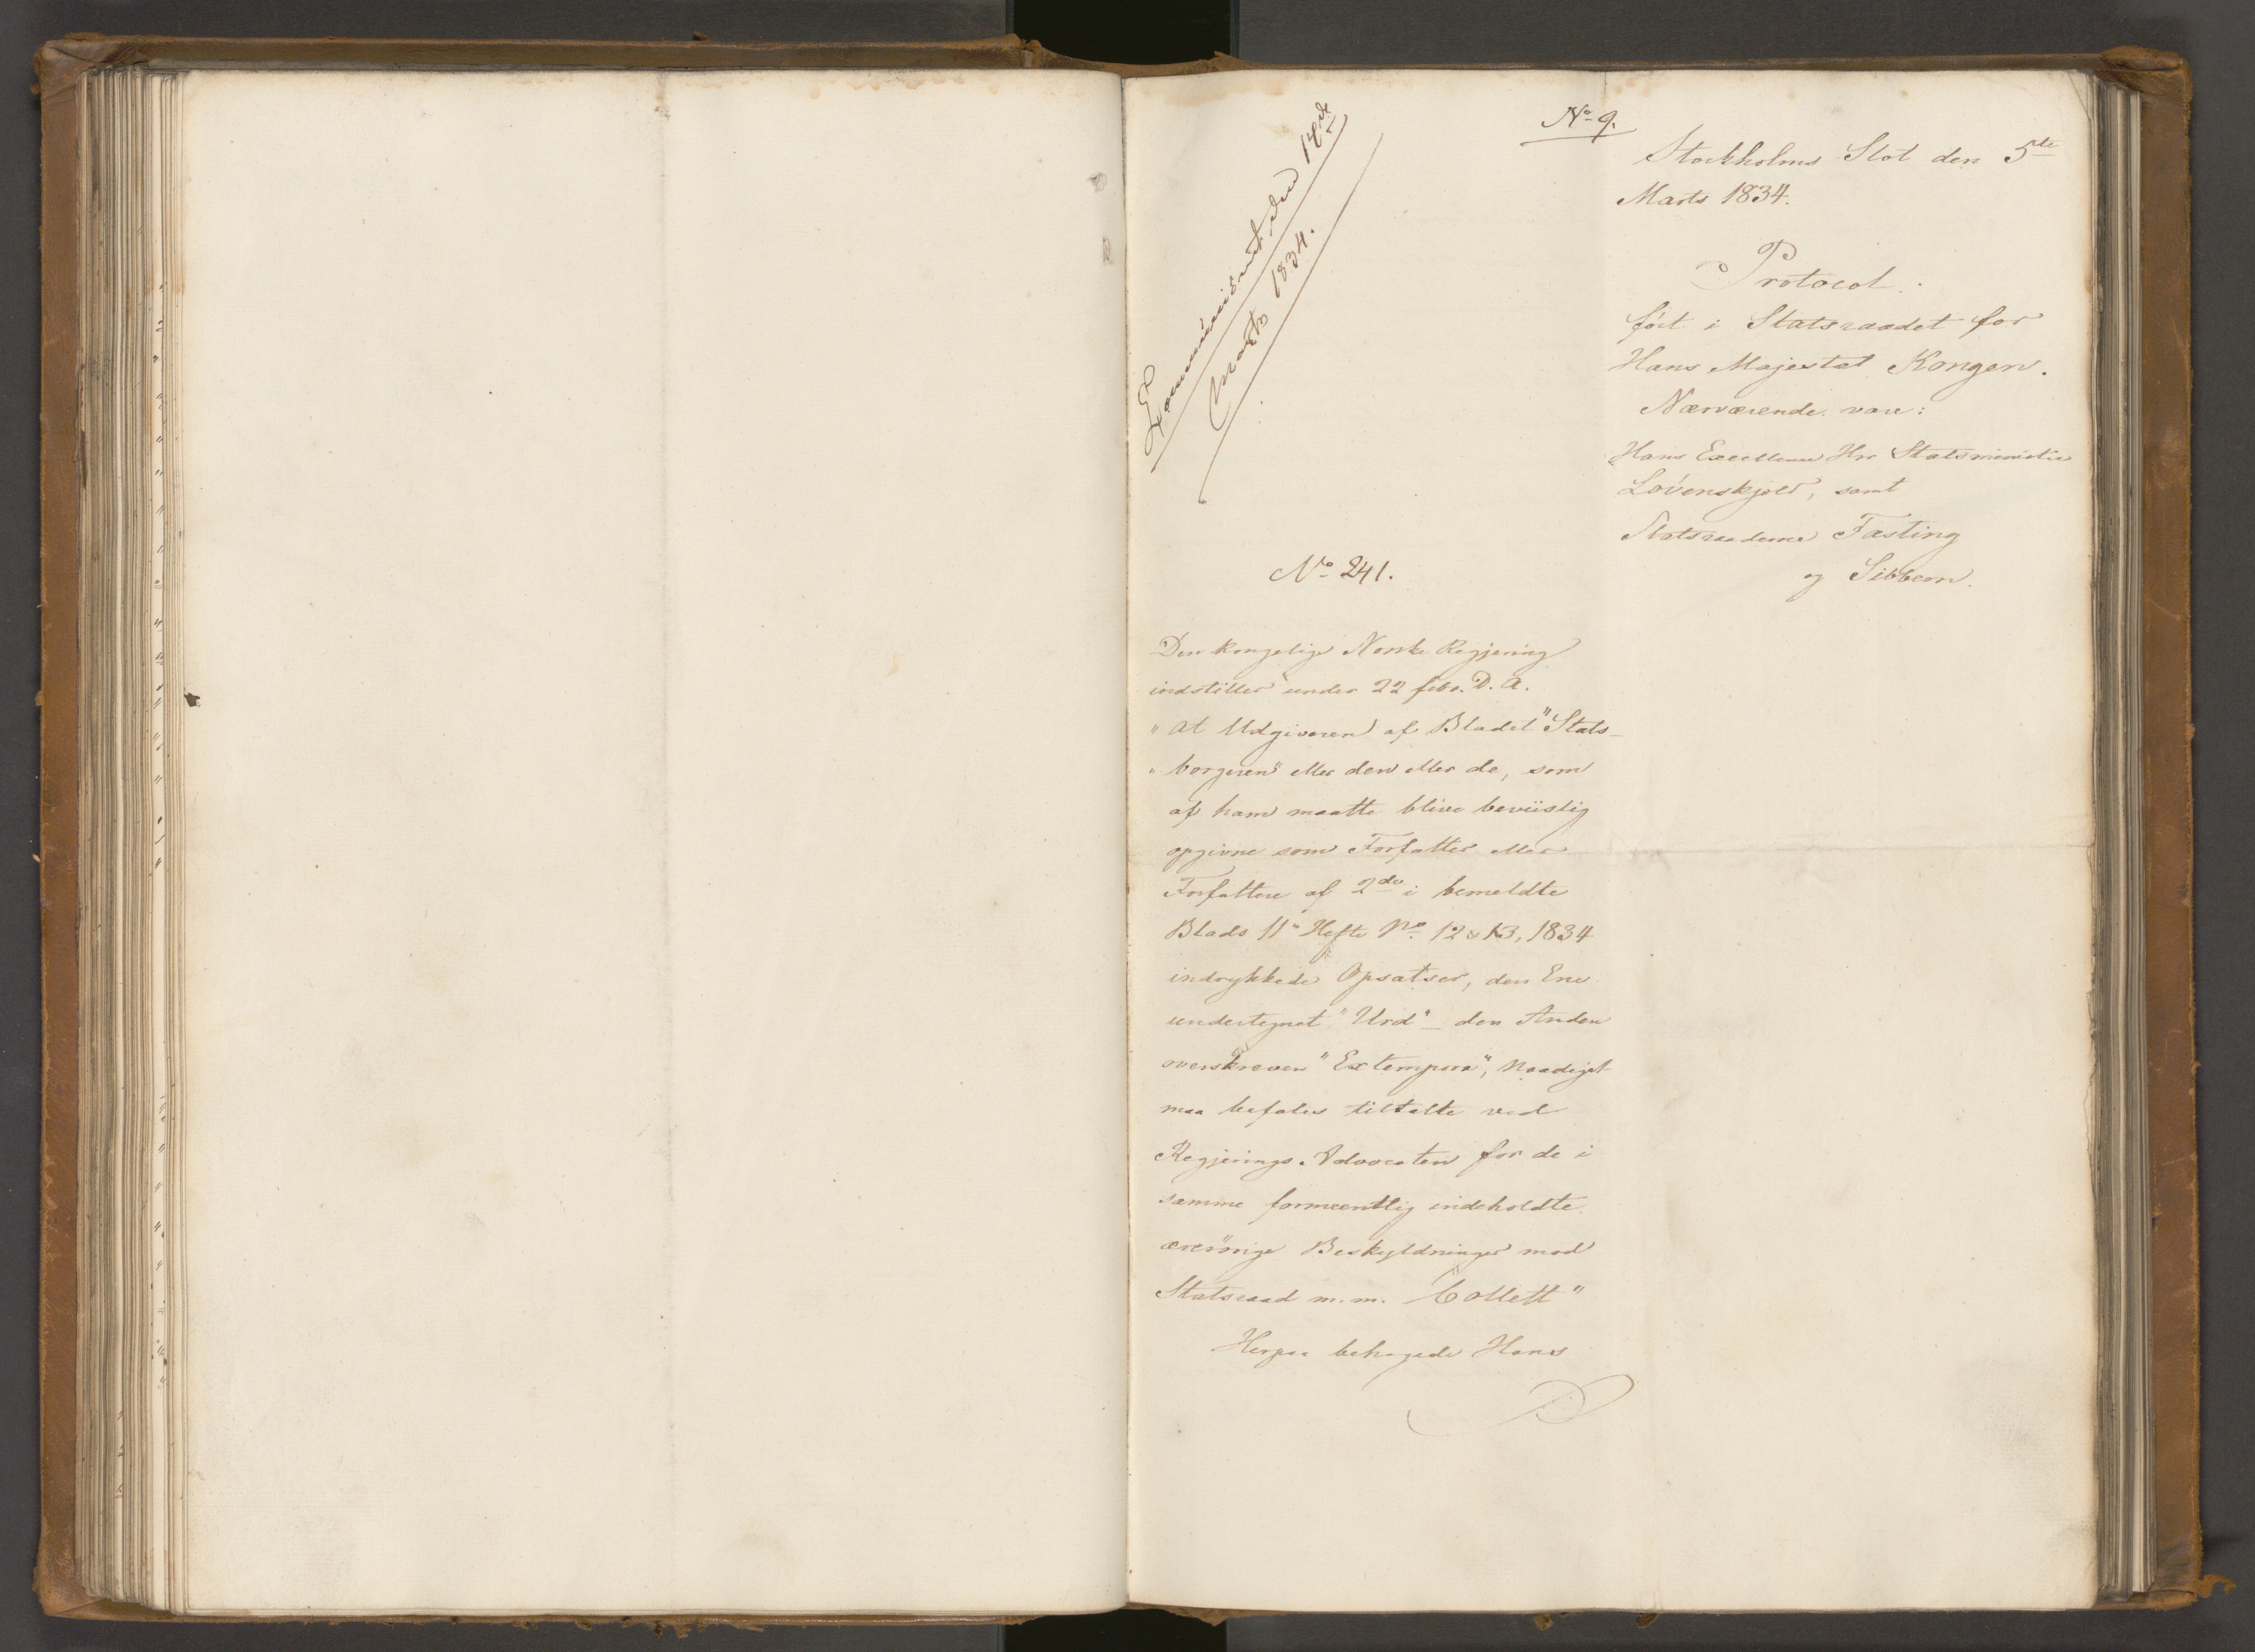 No 9.
Stockholms Slot den 5te
Marts 1834.
Protocol.
fört i Statsraadet for
Hans Majestæt Kongen.
Nærværende vare:
Hans Excellence Hr Statsminister
Lövenskjold, samt
Statsraaderne Fasting
og Sibbern.
den 14de
Marts 1834.
No 241.
Den kongelige Norske Regjering
indstiller under 22 febr. D. A.
"At Udgiveren af Bladet "Stats-
"borgeren" eller den eller de, som
af ham maatte blive beviislig
opgivne som Forfatter eller
Forfattere af 2de i bemeldte
Blads 11te Hefte No 12 & 13, 1834
indrykkede Opsatser, den Ene
undertegnet "Urd" – den Anden
overskreven "Extempore", naadigst
maa befales tiltalte ved
Regjerings-Advocaten for de i
samme formeentlig indeholdte
ærerörige Beskyldninger mod
Statsraad m. m. Collett"
Herpaa behagede Hans